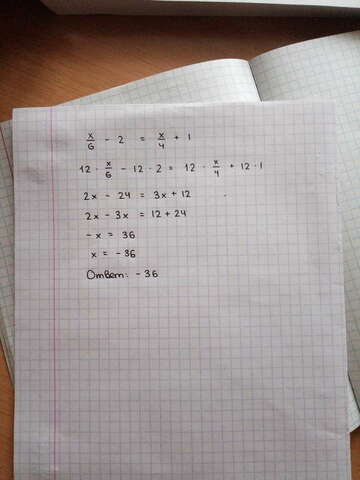 x/6 - 2 = x/4 + 1
12 · x/6 - 12 · 2 = 12 · x/4 + 12 · 1
2x - 24 = 3x + 12
2x - 3x = 12 + 24
-x = 36
x = -36
Ответ: -36